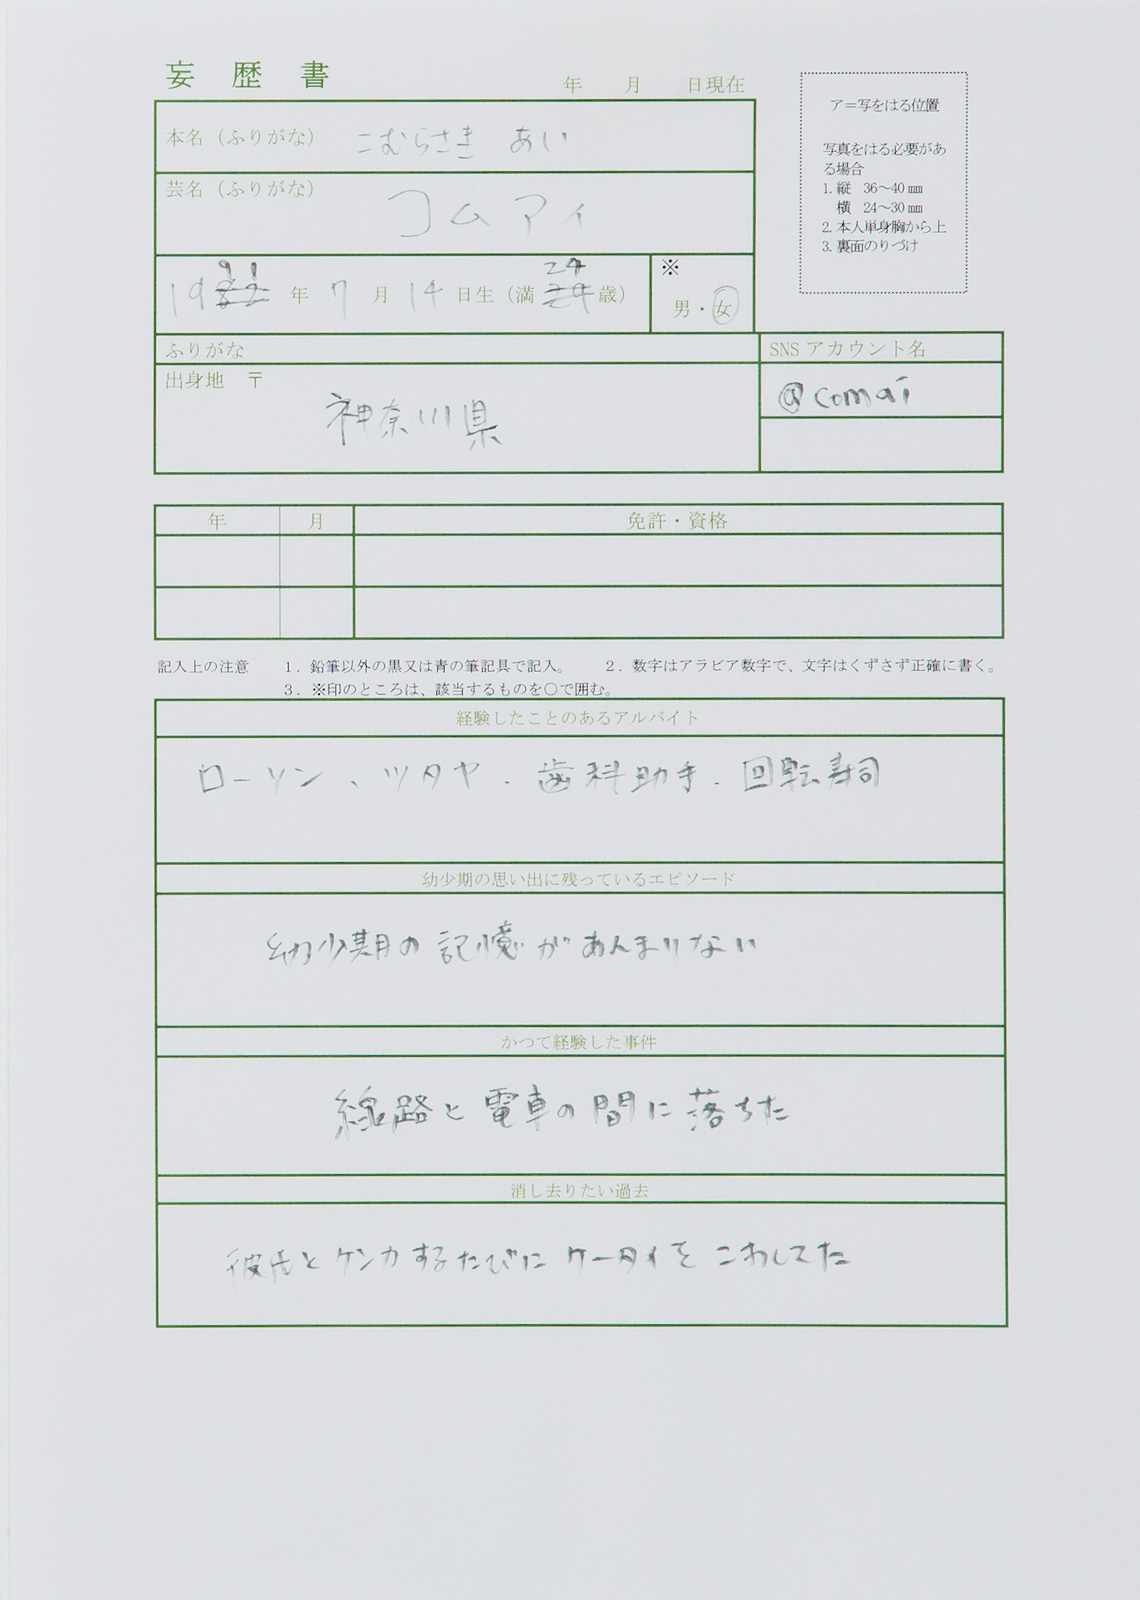 妄歴書
年 月 日現在
ア=写をはる位置
写真をはる必要があ
る場合
1. 縦 36～40㎜
横 24～30㎜
2. 本人単身胸から上
3. 裏面のりづけ
本名(ふりがな) こむらさき あい
芸名(ふりがな) コムアイ
91 24
19 年 7 月 14 日生(満 歳)
※
男・女
ふりがな
SNS アカウント名
出身地 〒
@comai
神奈川県
年 月 免許・資格
記入上の注意 1．鉛筆以外の黒又は青の筆記具で記入。 2．数字はアラビア数字で、文字はくずさず正確に書く。
3．※印のところは、該当するものを○で囲む。
経験したことのあるアルバイト
ローソン、ツタヤ．歯科助手．回転寿司
幼少期の思い出に残っているエピソード
幼少期の記憶があんまりない
かつて経験した事件
線路と電車の間に落ちた
消し去りたい過去
彼氏とケンカするたびにケータイをこわしてた